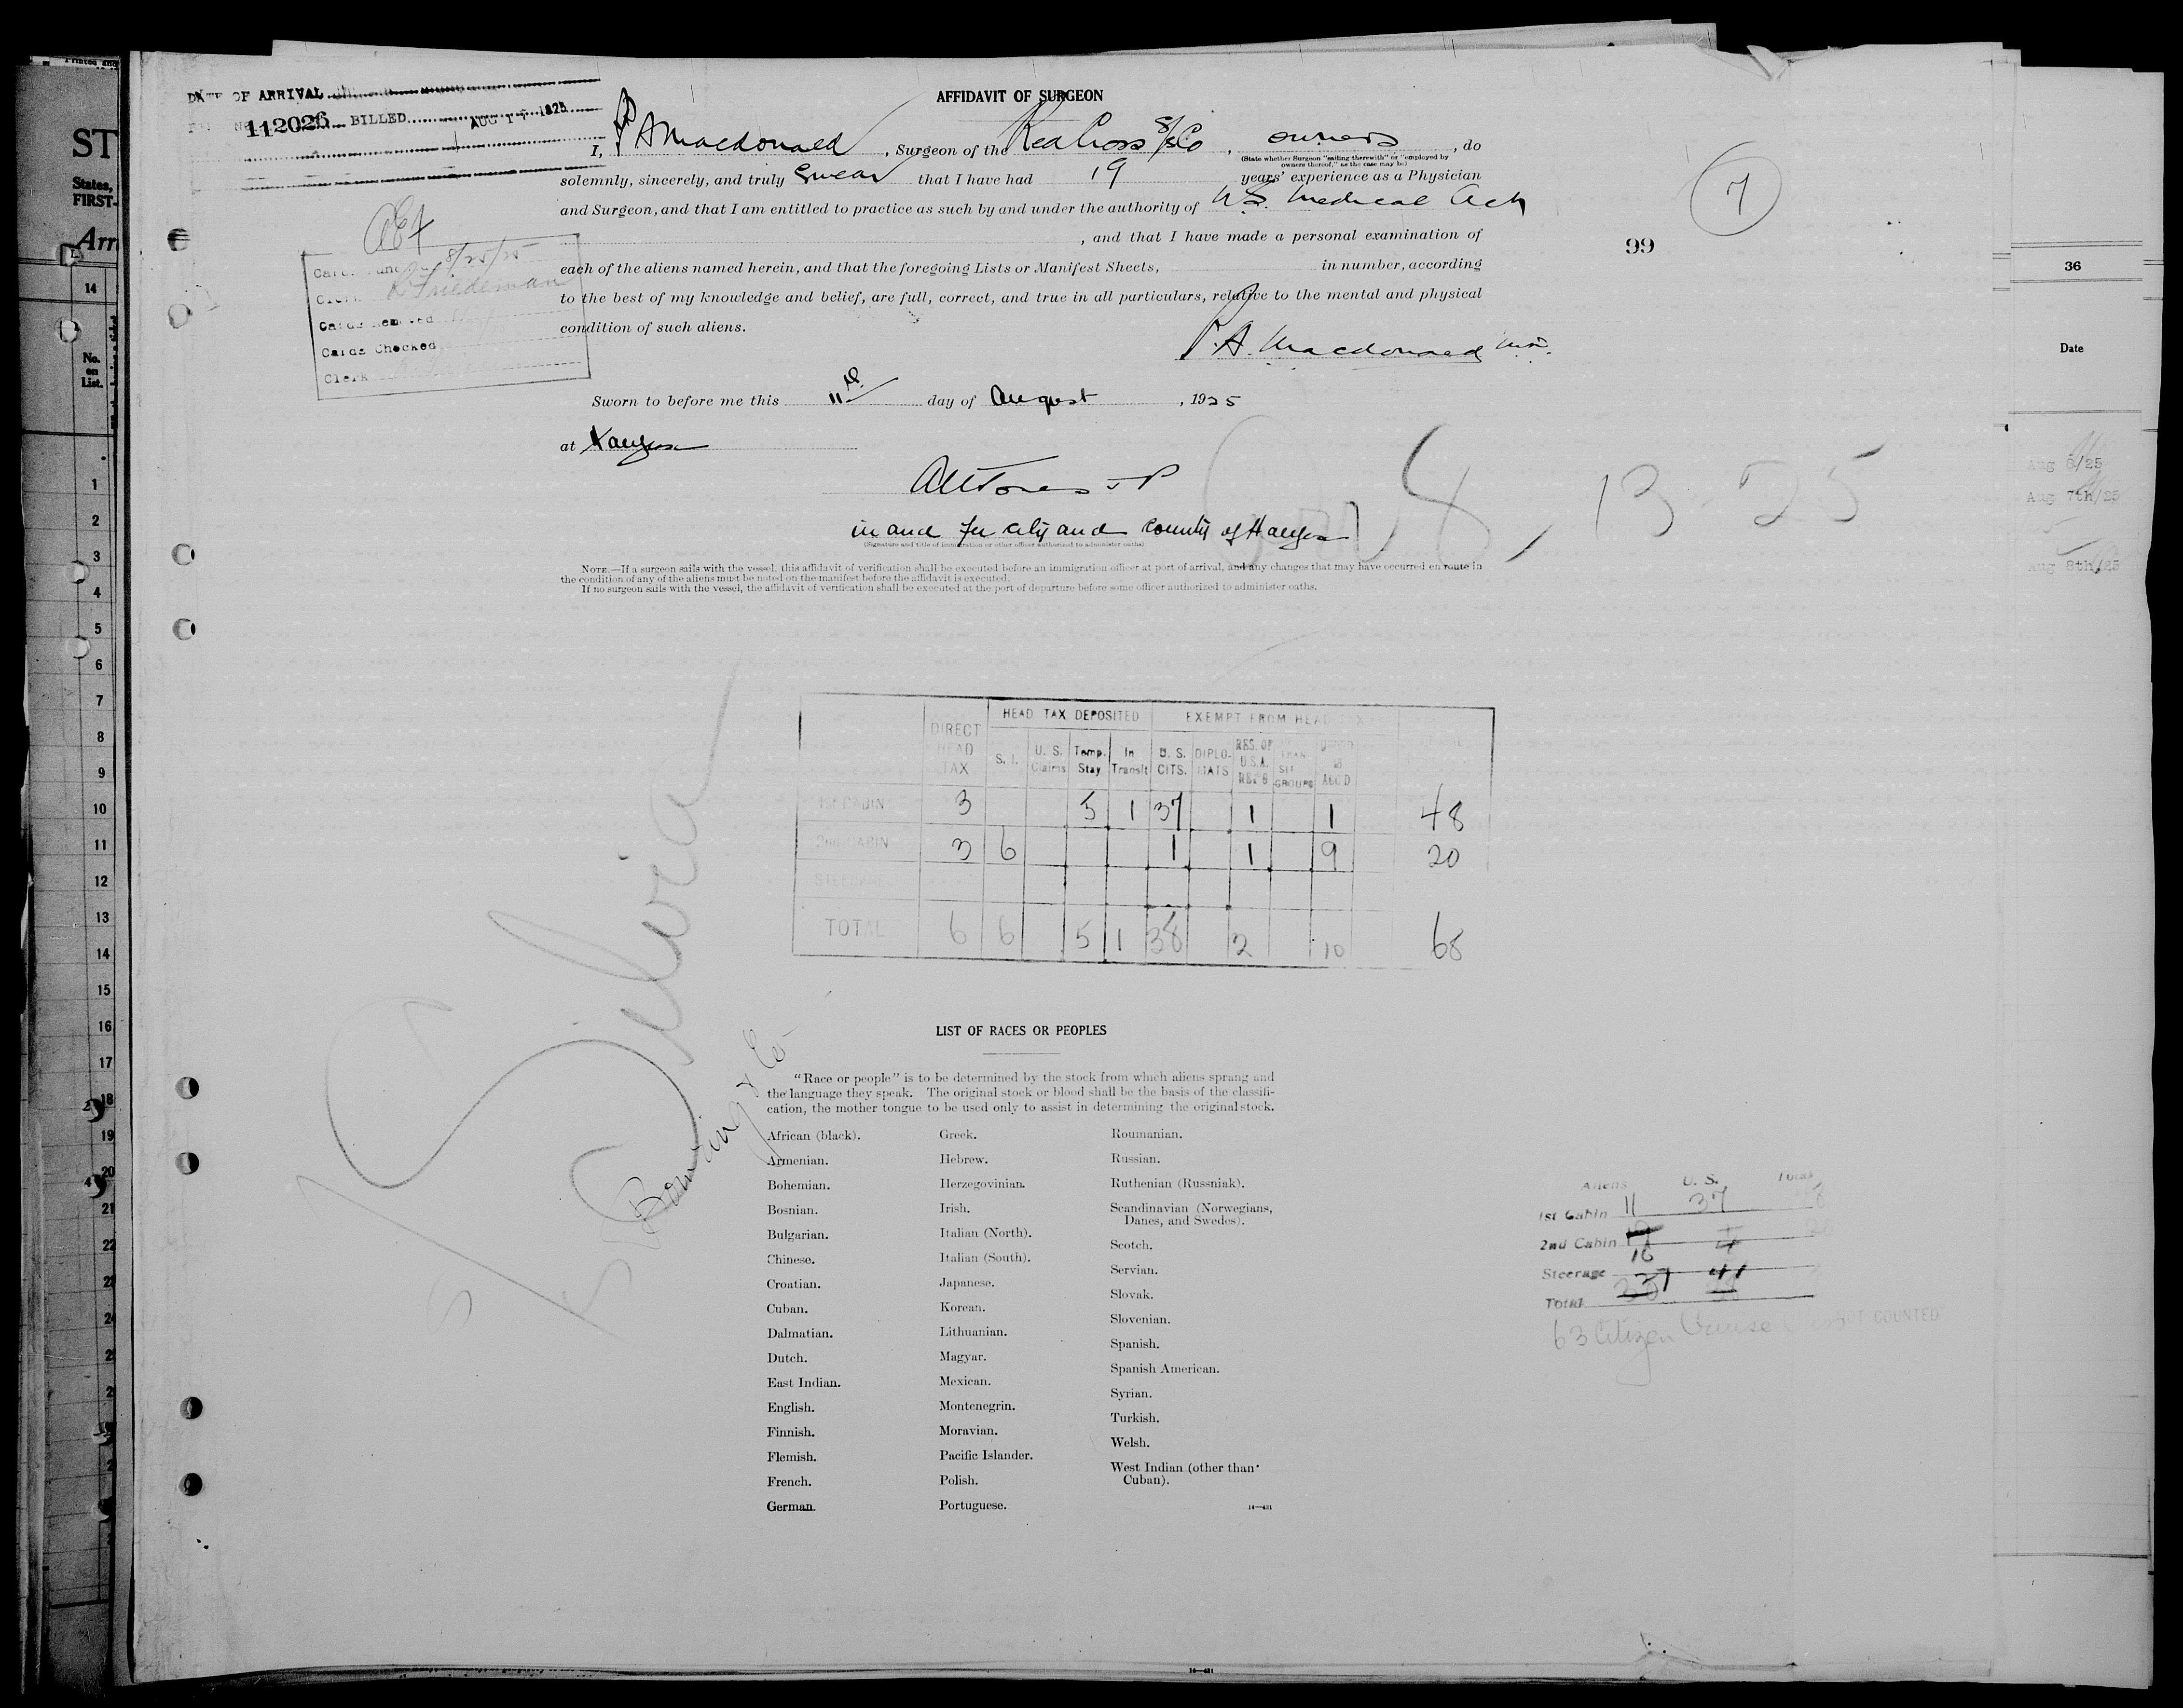 DATE OF ARRIVAL
112026 BILLED AUG 1925
AFFIDAVIT OF SURGEON
I, P A Macdonald, Surgeon of the Red Cross S/S Co, owners, do
(State whether Surgeon "sailing therewith" or "employed by
owners thereof," as the case may be)
solemnly, sincerely, and truly swear that I have had 19 years' experience as a Physician
and Surgeon, and that I am entitled to practice as such by and under the authority of N.S. Medical Act
, and that I have made a personal examination of
each of the aliens named herein, and that the foregoing Lists or Manifest Sheets, in number, according
to the best of my knowledge and belief, are full, correct, and true in all particulars, relative to the mental and physical
condition of such aliens.
P. A. Macdonald M.D.
Sworn to before me this 11th day of August, 1925
at Halifax
in and for city and county of Halifax
(Signature and title of immigration or other officer authorized to administer oaths)
NOTE.—If a surgeon sails with the vessel, this affidavit of verification shall be executed before an immigration officer at port of arrival, and any changes that may have occurred en route in
the condition of any of the aliens must be noted on the manifest before the affidavit is executed.
If no surgeon sails with the vessel, the affidavit of verification shall be executed at the port of departure before some officer authorized to administer oaths.
7
99
8/25/25
Clerk Friedeman
Cards Removed
Cards Checked
Clerk
13-25
HEAD TAX DEPOSITED EXEMPT FROM HEAD TAX
DIRECT HEAD TAX S. I. U. S. Claims Temp. Stay In Transit U. S. CITS. DIPLOMATS RES. OF U.S.A. TRANSIT GROUPS UNDER 16 ACC'D
1st CABIN 3 5 1 37 1 1 48
2nd CABIN 3 6 1 1 9 20
STEERAGE
TOTAL 6 6 5 1 38 2 10 68
S/S Silvia
Bowring & Co
LIST OF RACES OR PEOPLES
"Race or people" is to be determined by the stock from which aliens sprang and
the language they speak. The original stock or blood shall be the basis of the classifi-
cation, the mother tongue to be used only to assist in determining the original stock.
African (black).
Armenian.
Bohemian.
Bosnian.
Bulgarian.
Chinese.
Croatian.
Cuban.
Dalmatian.
Dutch.
East Indian.
English.
Finnish.
Flemish.
French.
German.
Greek.
Hebrew.
Herzegovinian.
Irish.
Italian (North).
Italian (South).
Japanese.
Korean.
Lithuanian.
Magyar.
Mexican.
Montenegrin.
Moravian.
Pacific Islander.
Polish.
Portuguese.
Roumanian.
Russian.
Ruthenian (Russniak).
Scandinavian (Norwegians,
Danes, and Swedes).
Scotch.
Servian.
Slovak.
Slovenian.
Spanish.
Spanish American.
Syrian.
Turkish.
Welsh.
West Indian (other than
Cuban).
14—431
Aliens U. S. Total
1st Cabin 11 37
2nd Cabin 16
Steerage
Total
63 Citizen Cruise NOT COUNTED
14—431
ST
States,
FIRST-
Arr
14
No.
on
List.
1
2
3
4
5
6
7
8
9
10
11
12
13
14
15
16
17
18
19
20
21
22
36
Date
Aug 6/25
Aug 7th/25
Aug 8th/25